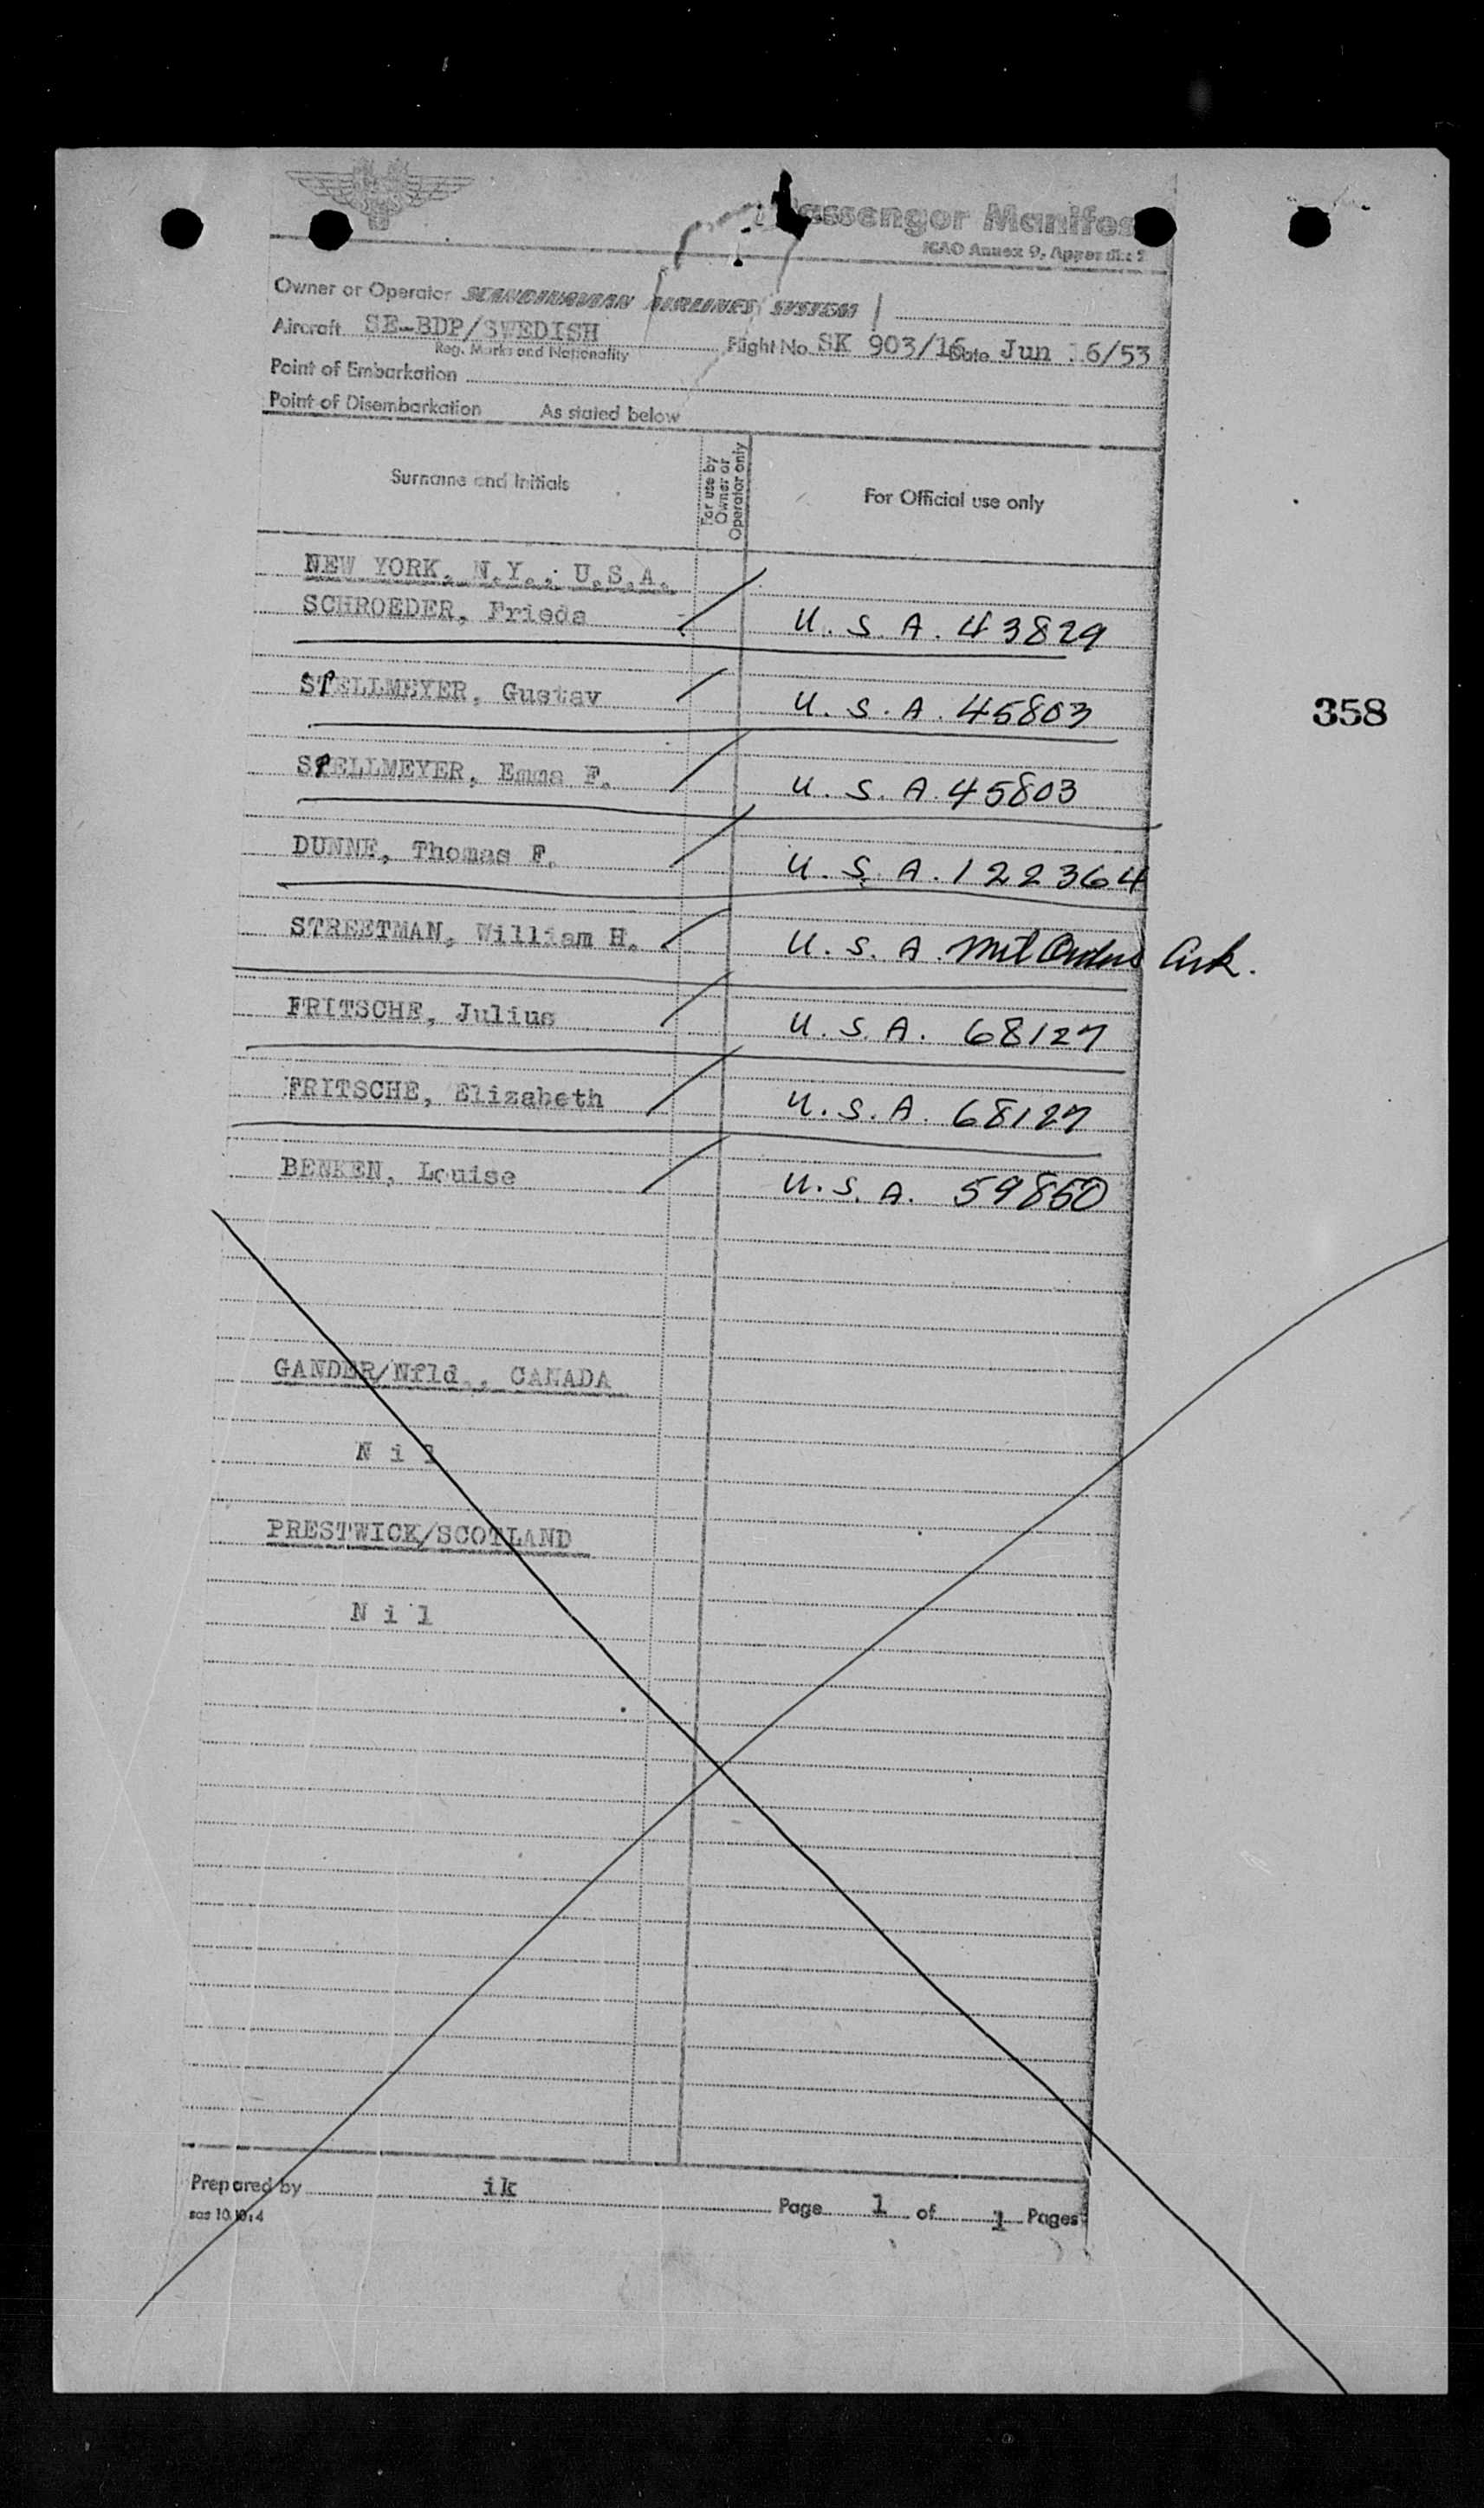 Passenger Manifes
ICAO Annex 9, Appendix 2
Owner or Operator SCANDINAVIAN AIRLINES SYSTEM
Aircraft SE-BDP/SWEDISH Flight No. SK 903/16 Date Jun 16/53
Reg. Marks and Nationality
Point of Embarkation
Point of Disembarkation As stated below
Surname and Initials For use by Owner or Operator only For Official use only
NEW YORK, N.Y., U.S.A.
SCHROEDER, Frieda U.S.A. 43829
SPELLMEYER, Gustav U.S.A. 45803
358
SPELLMEYER, Emma F. U.S.A. 45803
DUNNE, Thomas F. U.S.A. 122364
STREETMAN, William H. U.S.A. Mil Orders Ark.
FRITSCHE, Julius U.S.A. 68127
FRITSCHE, Elizabeth U.S.A. 68127
BENKEN, Louise U.S.A. 59850
GANDER/Nfld., CANADA
N i l
PRESTWICK/SCOTLAND
N i l
Prepared by ik Page 1 of 1 Pages
sas 10.10:4